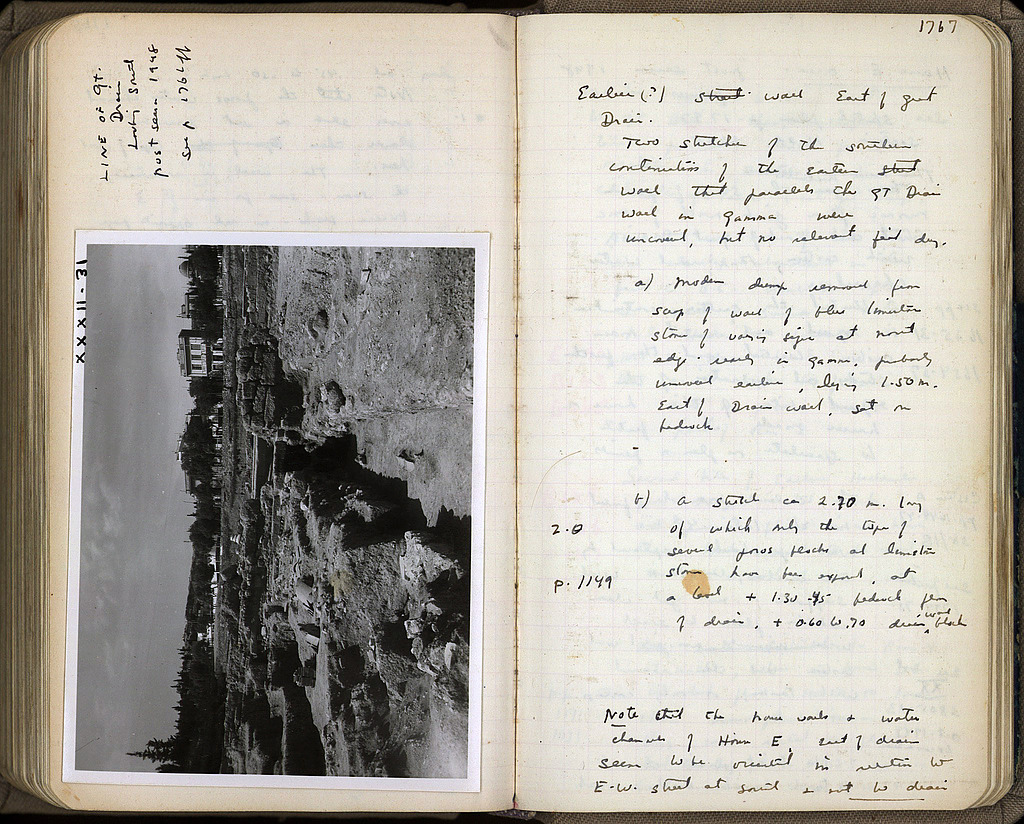 LINE OF GT.
Drain
Looking South
post season 1948
See p 1766 ff
XXII-31
1767
Earlier (?) street wall East of great
Drain.
Two stretches of the southern
continuation of the Eastern street
wall that parallels the GT Drain
wall in Gamma were
uncovered, but no relevant fill dug.
a) Modern dump removed from
scrap of wall of blue limestone
stone of varying size at north
edge nearly in Gamma, probably
uncovered earlier, lying 1.50 m.
East of Drain wall, set on
bedrock
b) a stretch ca 2.70 m. long
2.Θ
of which only the tops of
several poros blocks and limestone
p. 1149
stones have been exposed, at
a level + 1.30 -45 bedrock
of drain, + 0.60 to .70 drain wall block
Note that the house walls & water
channels of House E, east of drain
seem to be oriented in relation to
E-W. street at south & not to drain